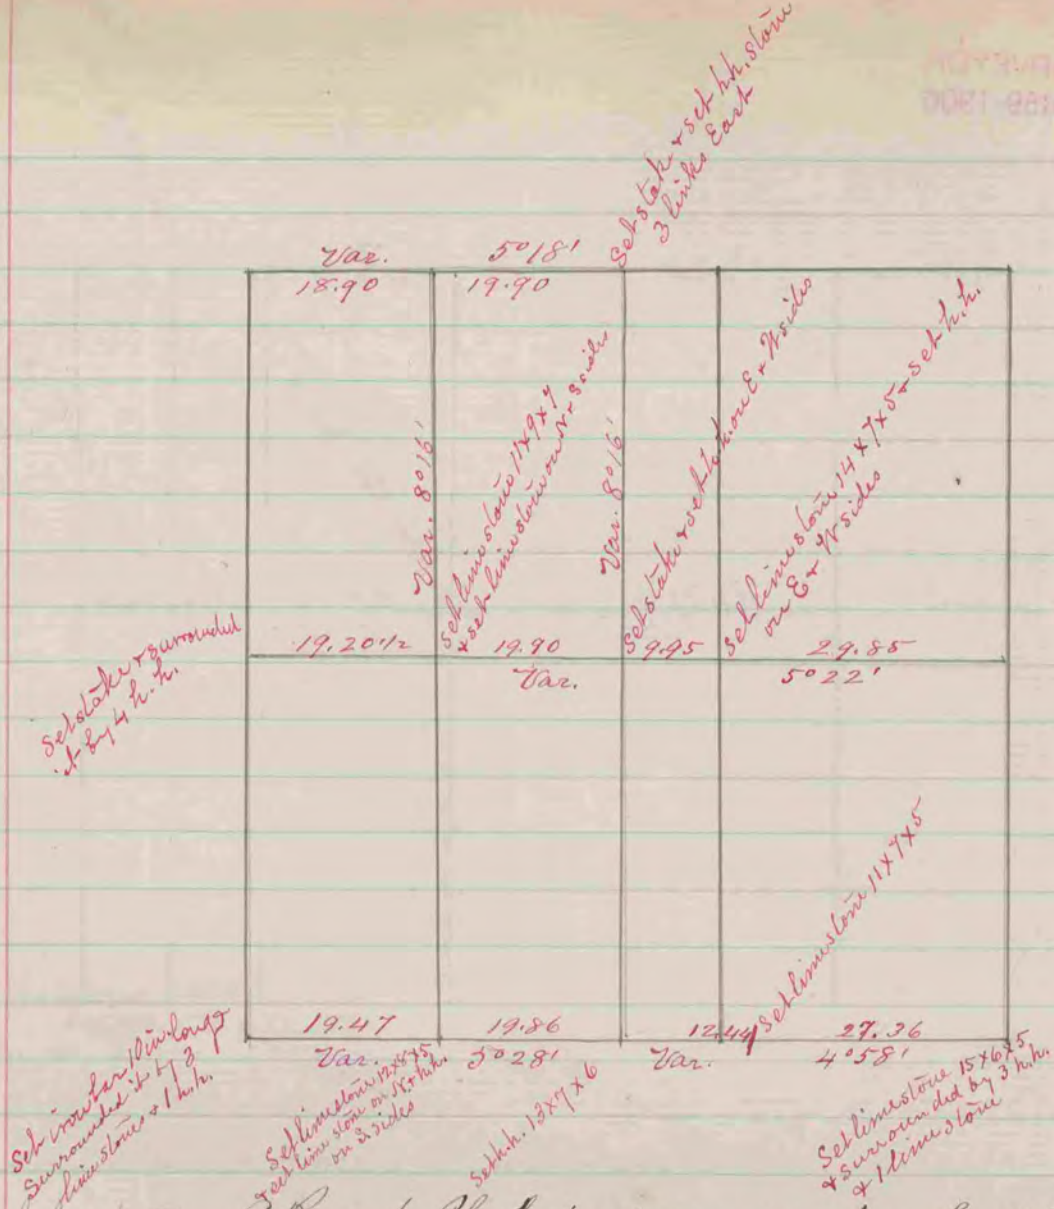 Set stake & set h.h. stone
3 links East
Var. 5°18'
18.90 19.90
Var. 8°16'
Set limestone 11x9x7
& set limestone on N & S sides
Var. 8°16'
Set stake & set h.h. on E & W sides
Set limestone 14x7x5 & set h.h.
on E & W sides
Set stake & surrounded
it by 4 h.h.
19.20 1/2 19.90 9.95 29.85
Var. 5°22'
Set limestone 11x7x5
19.47 19.86 12.44 27.36
Var. 5°28' Var. 4°58'
Set iron bar 10 in long &
Surrounded it by 3
lime stones & 1 h.h.
Set limestone 12x8x5
set lime stone on N & h.h.
on S sides
Set h.h. 13x7x6
Set limestone 15x6x5
& surrounded by 3 h.h.
& 1 lime stone